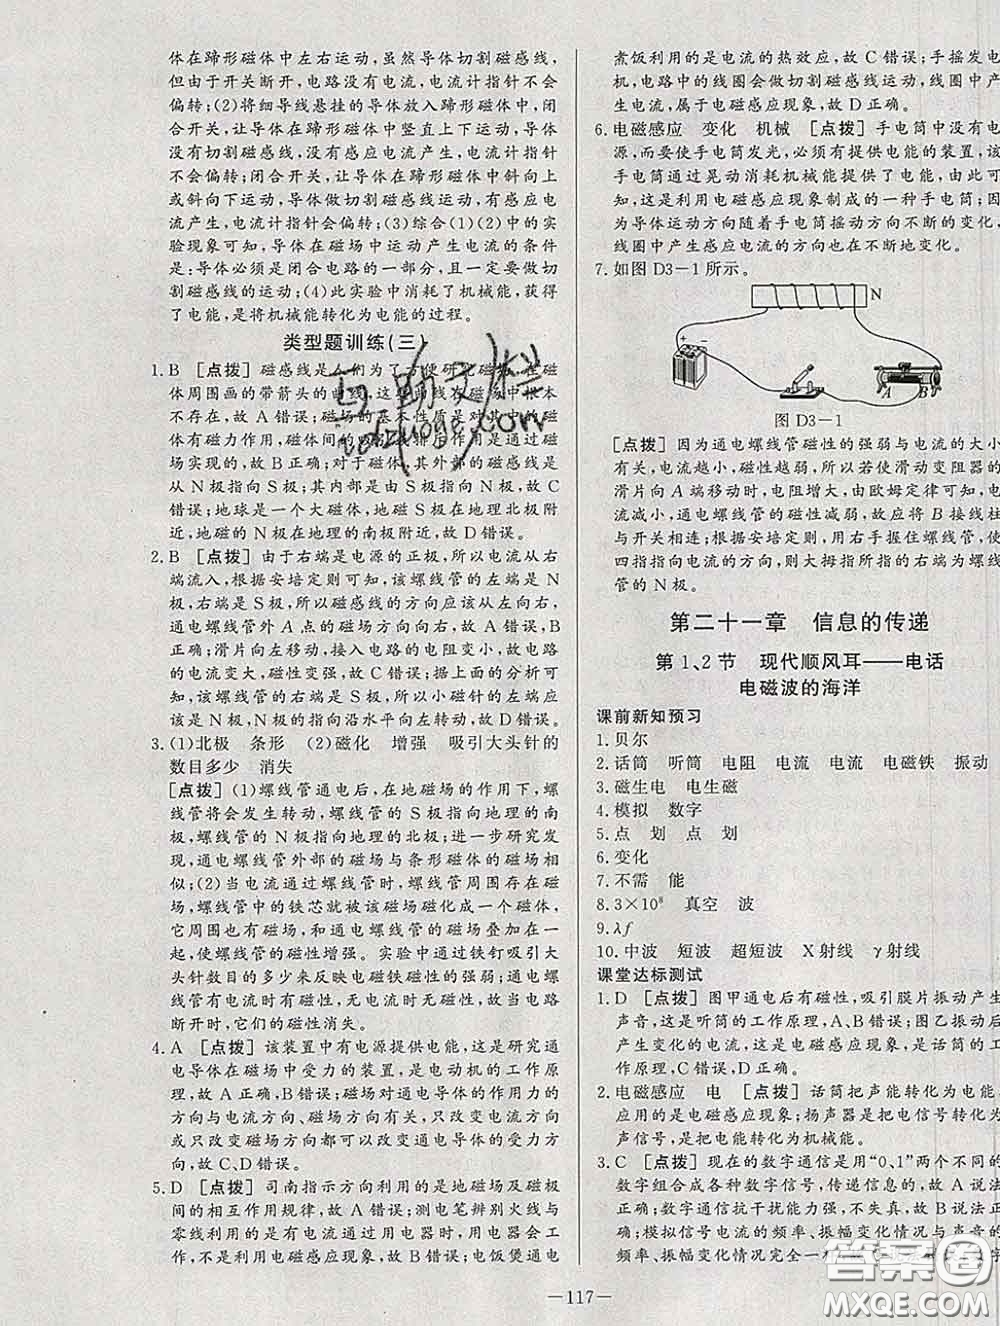 体在蹄形磁体中左右运动,虽然导体切割磁感线,
但由于开关断开,电路没有电流,电流计指针不会
偏转;(2)将细导线悬挂的导体放入蹄形磁体中,闭
合开关,让导体在蹄形磁体中竖直上下运动,导体
没有切割磁感线,没有感应电流产生,电流计指针
不会偏转;闭合开关,让导体在蹄形磁体中斜向上
或斜向下运动,导体切割磁感线运动,有感应电
流产生,电流计指针会偏转;(3)综合(1)(2)中的实
验现象可知,导体在磁场中运动产生电流的条件
是:导体必须是闭合电路的一部分,且一定要做切
割磁感线的运动;(4)此实验中消耗了机械能,获得
了电能,是将机械能转化为电能的过程。
类型题训练(三)
1.B [点拨] 磁感线是人们为了方便研究磁体在磁
体周围画的带箭头的曲线,这
不存在,故A错误;磁场的基本性质是对其中的磁
体有磁力作用,磁体间的
场实现的,故B正确;对于磁体,其外部的磁感线是
从N极指向S极;其内部是由S极指向N极,故C
错误;地球是一个大磁体,地磁S极在地理北极附
近,地磁的N极在地理的南极附近,故D错误。
2.B [点拨] 由于右端是电源的正极,所以电流从右
端流入,根据安培定则可知,该螺线管的左端是N
极,右端是S极,所以磁感线的方向应该从左向右,
通电螺线管外A点的磁场方向向右,故A错误,B
正确;滑片向左移动,接入电路的电阻变小,电路中
的电流变大,磁性变强,故C错误;根据安培定则可
知,该螺线管的右端是S极,所以小磁针的左端应
该是N极,N极的指向沿水平向左转动,故D错误。
3.(1)北极 条形 (2)磁化 增强 吸引大头针的
数目多少 消失
[点拨] (1)螺线管通电后,在地磁场的作用下,螺
线管将会发生转动,螺线管的S极指向地理的南
极,螺线管的N极指向地理的北极;进一步研究发
现,通电螺线管外部的磁场与条形磁体的磁场相
似;(2)当电流通过螺线管时,螺线管周围存在磁
场,螺线管中的铁芯就被该磁场磁化成一个磁体,
它周围也有磁场,和通电螺线管的磁场叠加在一
起,使螺线管的磁性增强。实验中通过铁钉吸引大
头针数目的多少来反映电磁铁磁性的强弱;通电螺
线管有电流时有磁性,无电流时无磁性,故当电路
断开时,它们的磁性消失。
4.A [点拨] 该装置中有电源提供电能,这是研究通
电导体在磁场中受力的装置,是电动机的工作原
理,故A正确,B错误;磁场对通电导体的作用力的
方向与电流方向、磁场方向有关,只改变电流方向
或只改变磁场方向都可以改变通电导体的受力方
向,故C、D错误。
5.D [点拨] 司南指示方向利用的是地磁场及磁极
间的相互作用规律,故A错误;测电笔辨别火线与
零线利用的是有电流通过用电器时,用电器会工
作,不是利用电磁感应现象,故B错误;电饭煲通电
煮饭利用的是电流的热效应,故C错误;手摇发电
机,电路中的线圈会做切割磁感线运动,线圈中产
生电流,属于电磁感应现象,故D正确。
6.电磁感应 变化 机械 [点拨] 手电筒中没有电
源,而要使手电筒发光,必须有提供电能的装置,该
手电筒通过晃动消耗机械能产生了电能,由此可
知,这是利用电磁感应现象制成的一种手电筒;因
为导体运动方向随着手电筒摇动方向不断的变化,
线圈中产生感应电流的方向也在不断地变化。
7.如图D3-1所示。
N
+ -
A B
图 D3-1
[点拨] 因为通电螺线管磁性的强弱与电流的大小
有关,电流越小,磁性越弱,所以若使滑动变阻器的
滑片向A端移动时,电阻增大,由欧姆定律可知,电
流减小,通电螺线管的磁性减弱,故应将B接线柱
与开关相连;根据安培定则,用右手握住螺线管,使
四指指向电流的方向,则大拇指所指的右端为螺线
管的N极。
第二十一章 信息的传递
第1、2节 现代顺风耳——电话
电磁波的海洋
课前新知预习
1.贝尔
2.话筒 听筒 电阻 电流 电流 电磁铁 振动
3.磁生电 电生磁
4.模拟 数字
5.点 划 点 划
6.变化
7.不需 能
8.3×10⁸ 真空 波
9.λf
10.中波 短波 超短波 X射线 γ射线
课堂达标测试
1.D [点拨] 图甲通电后有磁性,吸引膜片振动产生
声音,这是听筒的工作原理,A、B错误;图乙振动后
产生变化的电流,这是电磁感应现象,是话筒的工作
原理,C错误,D正确。
2.电磁感应 电 [点拨] 话筒把声能转化为电能,
应用的是电磁感应现象;扬声器是把电信号转化为
声信号,是把电能转化为机械能。
3.C [点拨] 现在的数字通信是用“0、1”两个不同的
数字组合成各种数字信号,传递信息的,故A说法
正确;数字通信抗干扰能力强,不失真,故B说法正
确;模拟信号电流的频率、振幅变化情况与声音的
频率、振幅变化情况完全一
—117—
答案圈
MXQE.COM